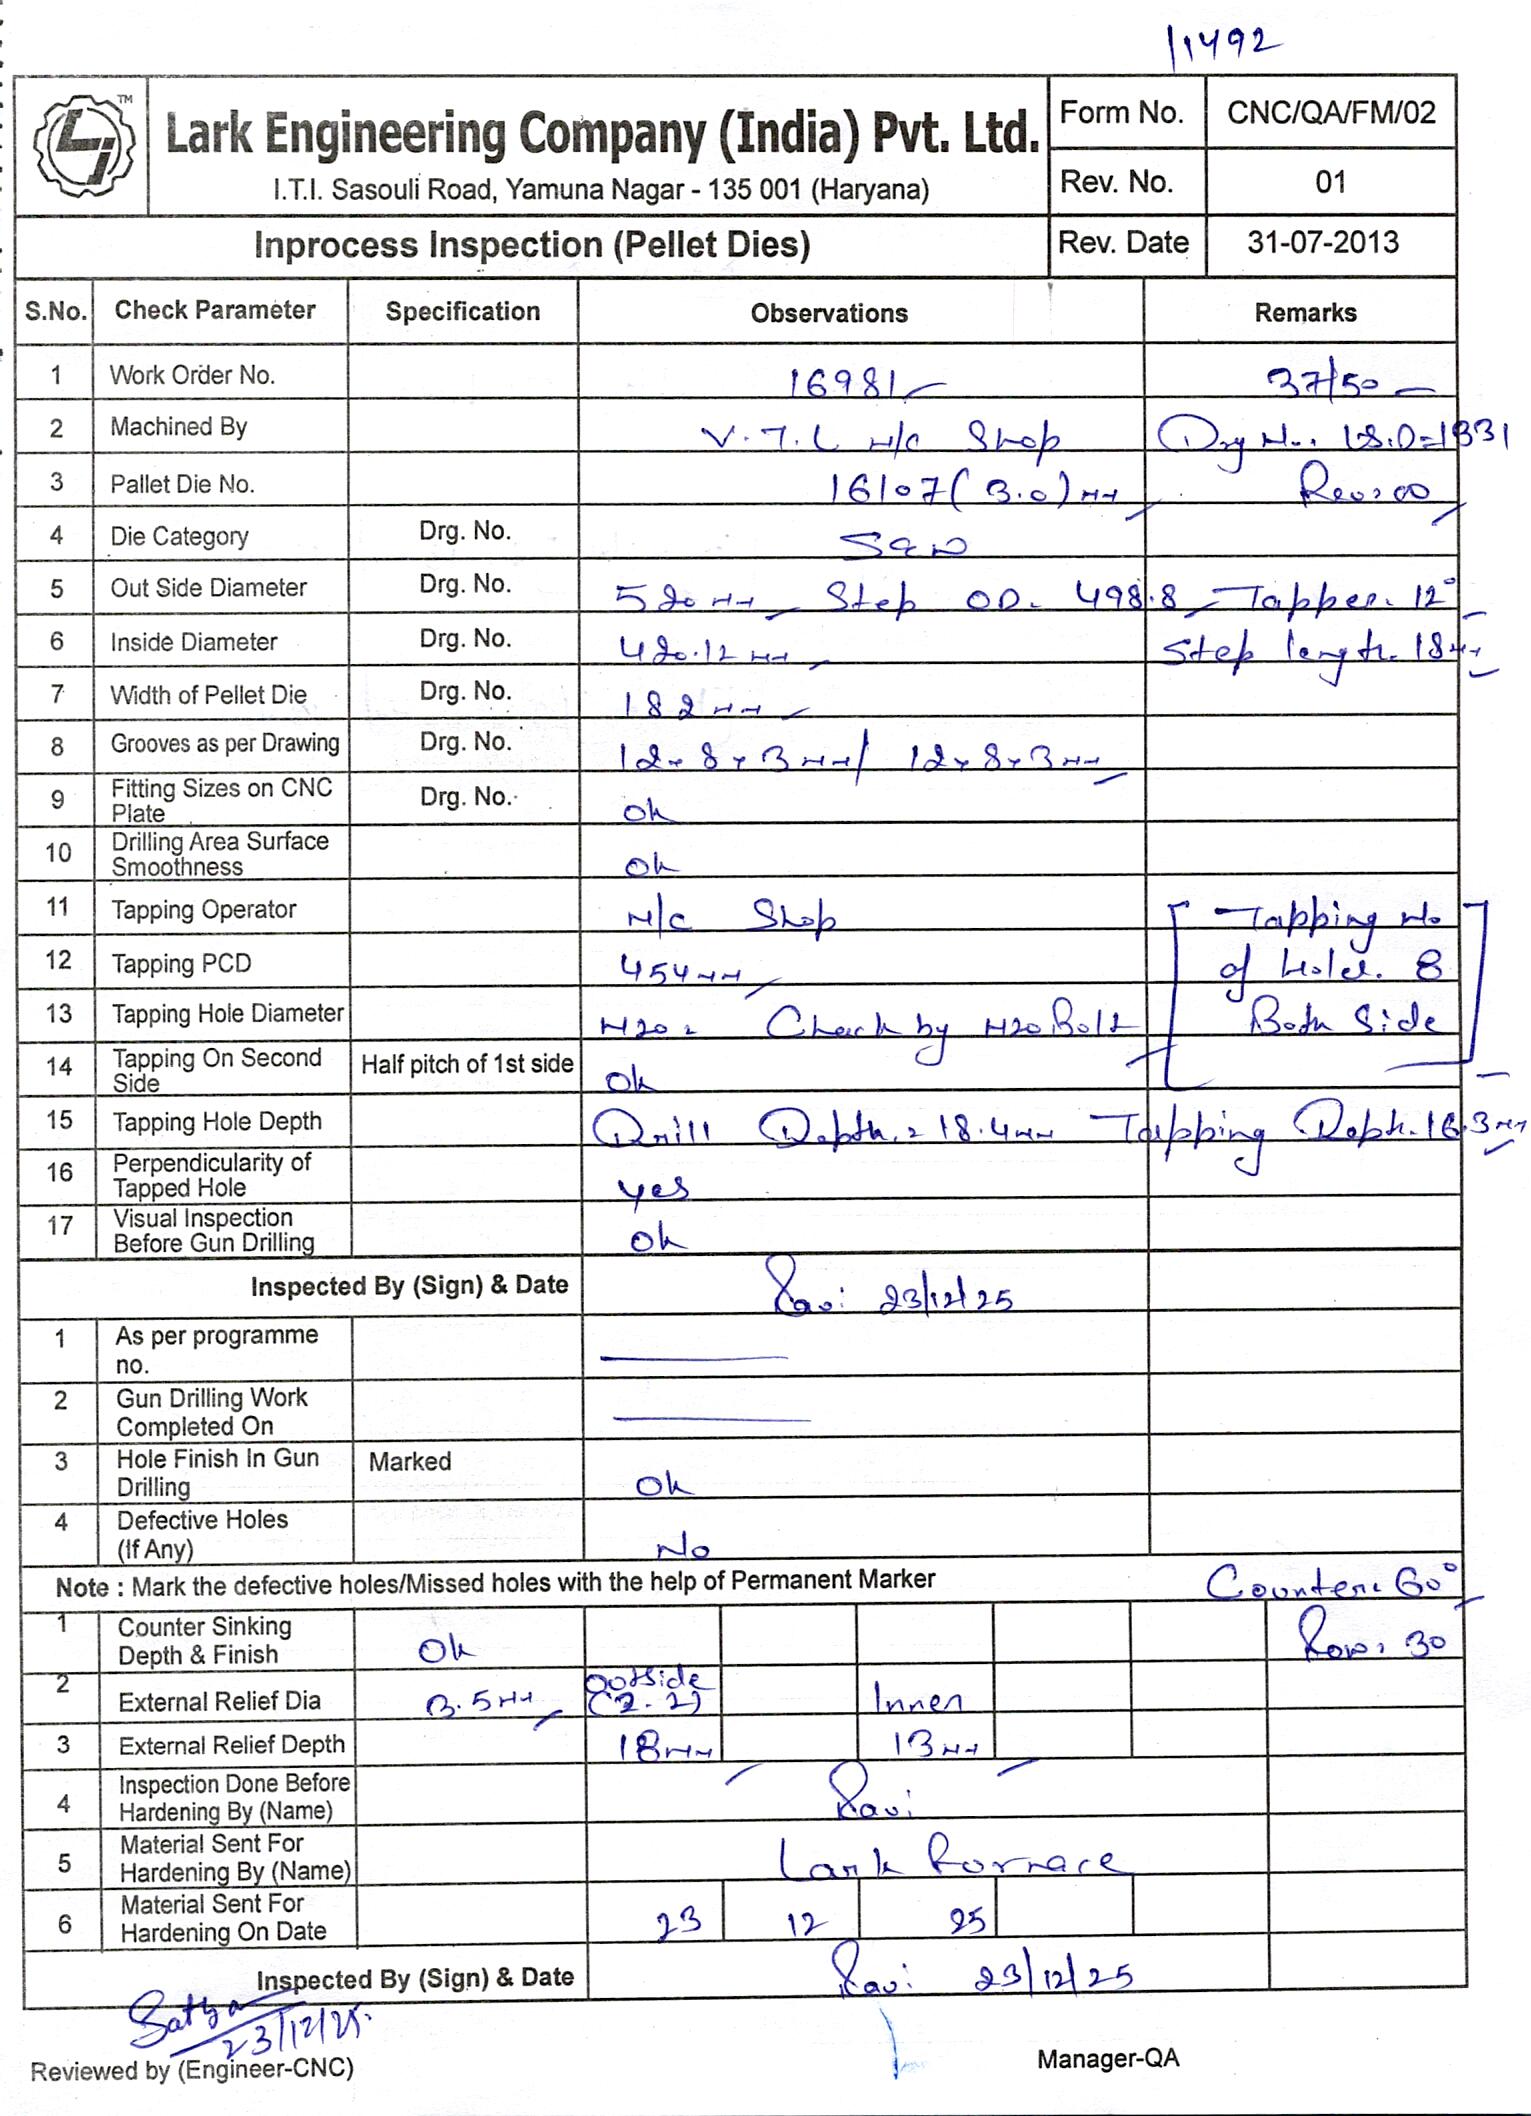 11492
TM
Lark Engineering Company (India) Pvt. Ltd.
I.T.I. Sasouli Road, Yamuna Nagar - 135 001 (Haryana)
Form No. CNC/QA/FM/02
Rev. No. 01
Inprocess Inspection (Pellet Dies) Rev. Date 31-07-2013
S.No. Check Parameter Specification Observations Remarks
1 Work Order No. 16981 37/50
2 Machined By V.T.L M/C Shop Drg No. LS.D=1831
3 Pallet Die No. 16107 (3.0) mm Rev: 00
4 Die Category Drg. No.
5 Out Side Diameter Drg. No. 520 mm Step OD. 498.8 Tapper. 12°
6 Inside Diameter Drg. No. 420.12 mm Step length. 18mm
7 Width of Pellet Die Drg. No. 182 mm
8 Grooves as per Drawing Drg. No. 12x8x3mm/ 12x8x3mm
9 Fitting Sizes on CNC Plate Drg. No. Ok
10 Drilling Area Surface Smoothness Ok
11 Tapping Operator M/C Shop Tapping No
12 Tapping PCD 454mm of Hole. 8
13 Tapping Hole Diameter M20 = Check by M20 Bolt Both Side
14 Tapping On Second Side Half pitch of 1st side Ok
15 Tapping Hole Depth Drill Depth = 18.4mm Tapping Depth. 16.3mm
16 Perpendicularity of Tapped Hole yes
17 Visual Inspection Before Gun Drilling Ok
Inspected By (Sign) & Date Ravi 23/12/25
1 As per programme no.
2 Gun Drilling Work Completed On
3 Hole Finish In Gun Drilling Marked Ok
4 Defective Holes (If Any) No
Note : Mark the defective holes/Missed holes with the help of Permanent Marker Counter: 60°
1 Counter Sinking Depth & Finish Ok Row: 30
2 External Relief Dia 3.5mm Outside (2.2) Inner
3 External Relief Depth 18mm 13mm
4 Inspection Done Before Hardening By (Name) Ravi
5 Material Sent For Hardening By (Name) Lark Furnace
6 Material Sent For Hardening On Date 23 12 25
Inspected By (Sign) & Date Ravi 23/12/25
Satya
23/12/25.
Reviewed by (Engineer-CNC) Manager-QA